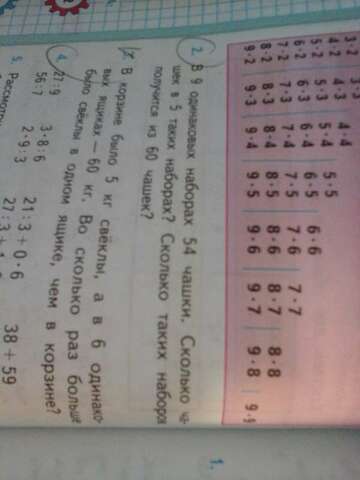 3·2
4·2 4·3 4·4
5·2 5·3 5·4 5·5
6·2 6·3 6·4 6·5 6·6
7·2 7·3 7·4 7·5 7·6 7·7
8·2 8·3 8·4 8·5 8·6 8·7 8·8
9·2 9·3 9·4 9·5 9·6 9·7 9·8 9·9
2. В 9 одинаковых наборах 54 чашки. Сколько ча-
шек в 5 таких наборах? Сколько таких набора
получится из 60 чашек?
3. В корзине было 5 кг свёклы, а в 6 одинако-
вых ящиках — 60 кг. Во сколько раз больше
было свёклы в одном ящике, чем в корзине?
4. 27:9 3·8:6 21:3+0·6 38+59
56:7 2·9:3 27:3+1
5. Рассмотри
1.